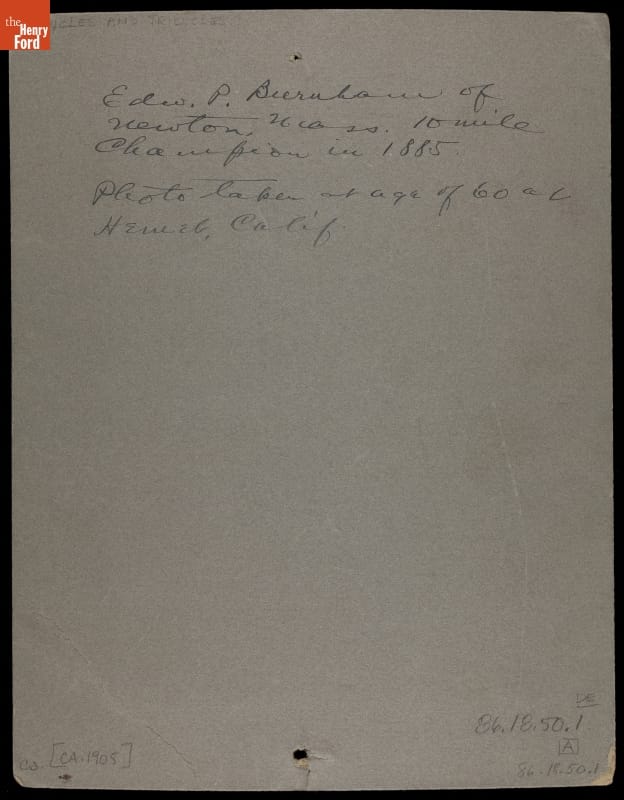 the
Henry
Ford
CYCLES AND TRICYCLES
Edw. P. Burnham of
Newton, Mass. 10 mile
Champion in 1885.
Photo taken at age of 60 at
Hemet, Calif.
DE
86.18.50.1
A
86.18.50.1
ca. [CA. 1905]